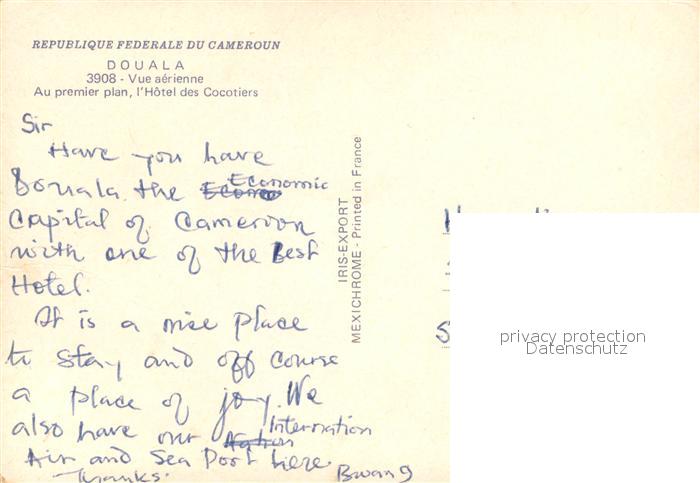 REPUBLIQUE FEDERALE DU CAMEROUN
DOUALA
3908 - Vue aérienne
Au premier plan, l'Hôtel des Cocotiers
Sir
Have you have
Douala the Economic
Capital of Cameroon
with one of the Best
Hotel.
It is a nice place
to stay and off course
a place of joy. We
also have our Internation
Air and Sea Port here
Thanks. Bwang
IRIS-EXPORT
MEXICHROME - Printed in France
privacy protection
Datenschutz